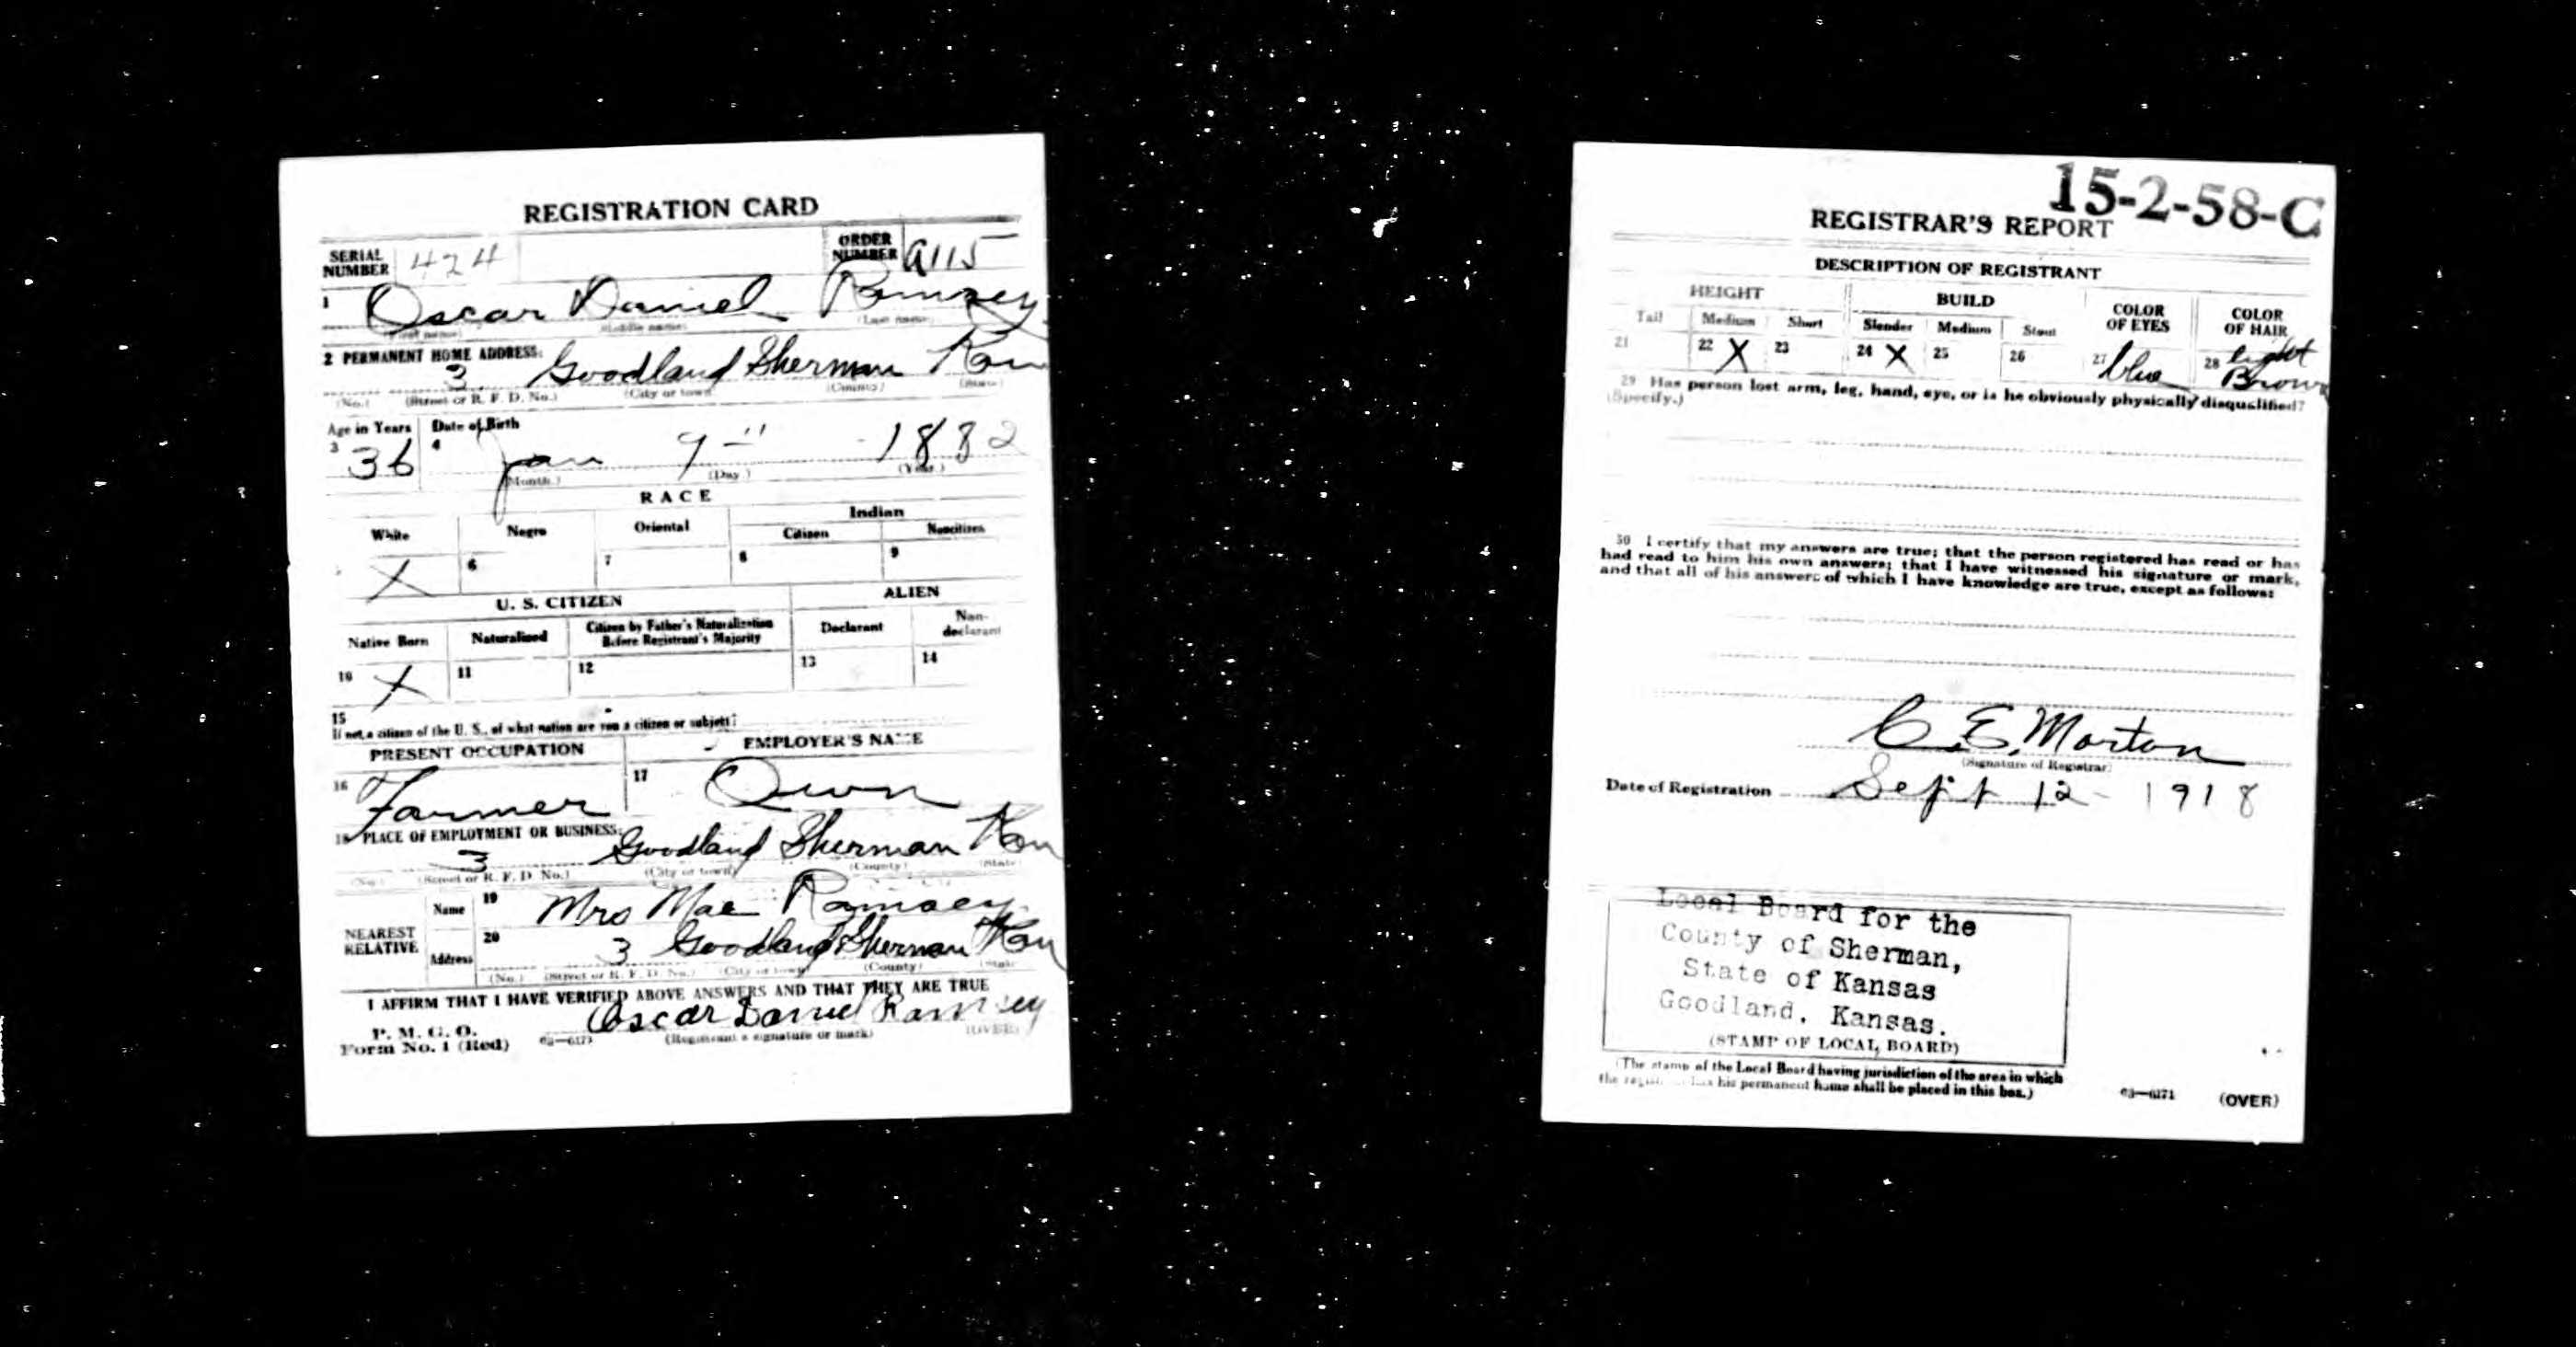 REGISTRATION CARD
SERIAL NUMBER 424 ORDER NUMBER A115
1 Oscar Daniel Ramsey
(First name) (Middle name) (Last name)
2 PERMANENT HOME ADDRESS:
3 Goodland Sherman Kan
(No.) (Street or R. F. D. No.) (City or town) (County) (State)
Age in Years Date of Birth
3 36 4 Jan 9 - " - 1882
(Month.) (Day.) (Year.)
RACE
White Negro Oriental Indian
Citizen Noncitizen
X 6 7 8 9
U. S. CITIZEN ALIEN
Native Born Naturalized Citizen by Father's Naturalization Before Registrant's Majority Declarant Non-declarant
10 X 11 12 13 14
15
If not a citizen of the U. S., of what nation are you a citizen or subject?
PRESENT OCCUPATION EMPLOYER'S NAME
16 Farmer 17 Own
18 PLACE OF EMPLOYMENT OR BUSINESS:
3 Goodland Sherman Kan
(No.) (Street or R. F. D. No.) (City or town) (County) (State)
NEAREST RELATIVE
Name 19 Mrs Mae Ramsey
Address 20 3 Goodland Sherman Kan
(No.) (Street or R. F. D. No.) (City or town) (County) (State)
I AFFIRM THAT I HAVE VERIFIED ABOVE ANSWERS AND THAT THEY ARE TRUE
P. M. G. O.
Form No. 1 (Red) Oscar Daniel Ramsey
(Registrant's signature or mark) (OVER)
15-2-58-C
REGISTRAR'S REPORT
DESCRIPTION OF REGISTRANT
HEIGHT BUILD COLOR OF EYES COLOR OF HAIR
Tall Medium Short Slender Medium Stout
21 22 X 23 24 X 25 26 27 blue 28 light Brown
29 Has person lost arm, leg, hand, eye, or is he obviously physically disqualified?
(Specify.)
30 I certify that my answers are true; that the person registered has read or has
had read to him his own answers; that I have witnessed his signature or mark,
and that all of his answers of which I have knowledge are true, except as follows:
C. E. Morton
(Signature of Registrar)
Date of Registration Sept 12 - 1918
Local Board for the
County of Sherman,
State of Kansas
Goodland, Kansas.
(STAMP OF LOCAL BOARD)
(The stamp of the Local Board having jurisdiction of the area in which
the registrant has his permanent home shall be placed in this box.)
03—6171 (OVER)